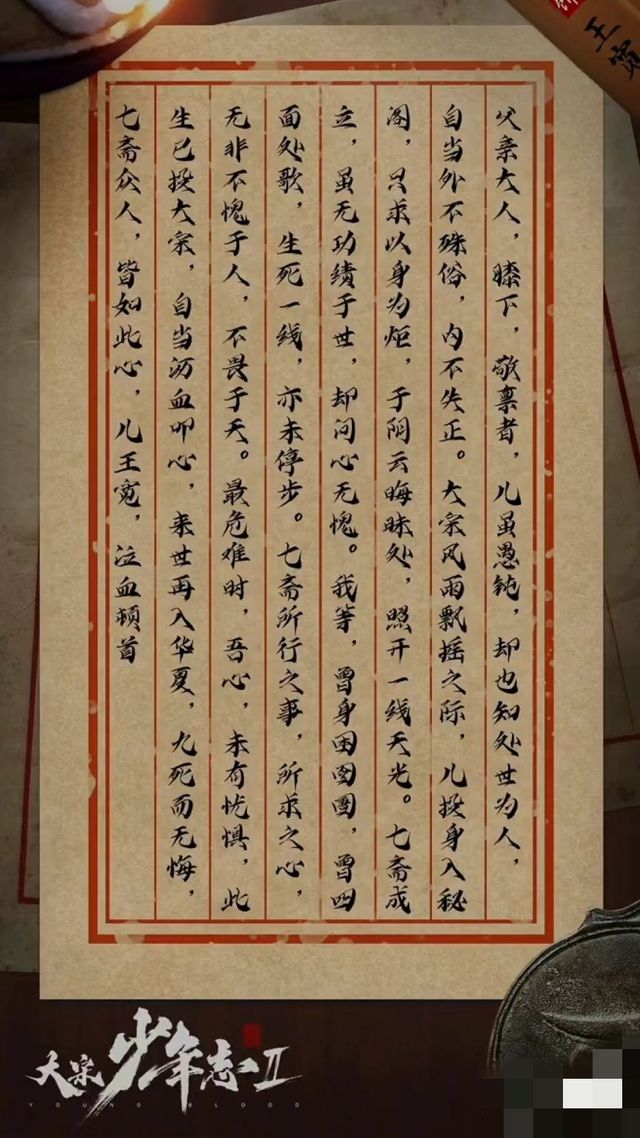 王宽
父亲大人，膝下，敬禀者，儿虽愚钝，却也知处世为人，
自当外不殊俗，内不失正。大宋风雨飘摇之际，儿投身入秘
阁，只求以身为炬，于阴云晦昧处，照开一线天光。七斋成
立，虽无功绩于世，却问心无愧。我等，曾身困囹圄，曾四
面处歌，生死一线，亦未停步。七斋所行之事，所求之心，
无非不愧于人，不畏于天。最危难时，吾心，未有忧惧，此
生已投大宋，自当沥血叩心，来世再入华夏，九死而无悔，
七斋众人，皆如此心，儿王宽，泣血顿首
大宋少年志II
YOUNG BLOOD